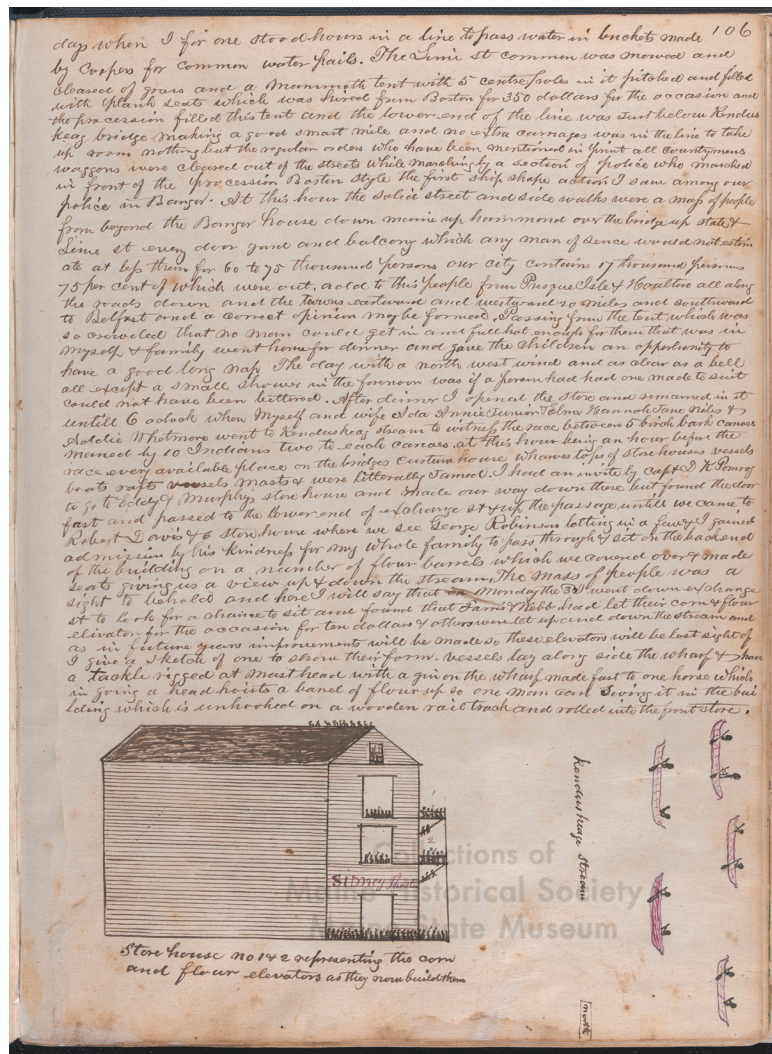 106
days when I for one stood hours in a line to pass water in buckets made
by Coopers for common water pails. The Lime st common was mowed and
cleased of grass and a Mammoth tent with 5 centre poles in it pitched and filled
with plank seats which was hired from Boston for 350 dollars for the occasion and
the procession filled this tent and the lower end of the line was just below Kendus
keag bridge making a good smart mile and no extra carriages was in the line to take
up room nothing but the regular orders who have been mentioned in print all countrymens
waggons were cleased out of the streets while marching by a section of police who marched
in front of the procession Boston style the first ship shape action I saw among our
police in Bangor. At this hour the solid street and side walks were a mass of people
from beyond the Bangor house down maine up hammond over the bridge up state &
Lime st every door yard and balcony which any man of sence would not estim
ate at less them for 60 to 75 thousand persons our city contains 17 thousand persons
75 per cent of which were out. add to this people from Presque Isle & Houlton all along
the roads down and the towns eastward and westward 20 miles and southward
to Belfast and a correct opinion may be formed. Passing from the tent which was
so crowded that no man could get in and full hot enough for them that was in
Myself & family went home for dinner and gave the children an opportunity to
have a good long nap The day with a north west wind and as clear as a bell
all except a small shower in the forenoon was if a person had had one made to suit
could not have been bettered. After dinner I opened the store and remained in it
untill 6 oclock when Myself and wife Ida Annie Junior Hannah Jane Niles &
Addie Whetmore went to Kenduskeag stream to witness the race between 5 birch bark canoes
maned by 10 Indians two to each canoe. at this hour being an hour before the
race every available place on the bridges customhouse wharves tops of storehouses vessels
boats rafts masts & were litterally Jamed. I had an invite by capt D K Pomroy
to go to Eddy & Murphys store house and made our way down there but found the door
fast and passed to the lower end of exchange st & up the passage untill we came to
Robert Davis & Co store house where we see George Robinson letting in a few & I gained
admission by his kindness for my whole family to pass through & sit on the back end
of the building on a number of flour barrels which we covered over & made
seats giving us a view up & down the stream, The mass of people was a
sight to behold and here I will say that on Monday the 3d I went down exchange
st to look for a chance to sit and found that & Webb had let their corn & flour
elivator for the occasion for ten dollars & others were let up and down the stream and
as in future years improvements will be made so these elevators will be lost sight of
I give a sketch of one to show their form. vessels lay along side the wharf & have
a tackle rigged at mast head with a gin on the wharf made fast to one horse which
in going a head hoists a barrel of flour up so one man can swing it in the bui
lding which is unhooked on a wooden rail track and rolled into the front store.
Sidney
Kenduskeage stream
north
Store house no 1 & 2 representing the corn
and flour elevators as they now build them
Collections of
Maine Historical Society
Maine State Museum